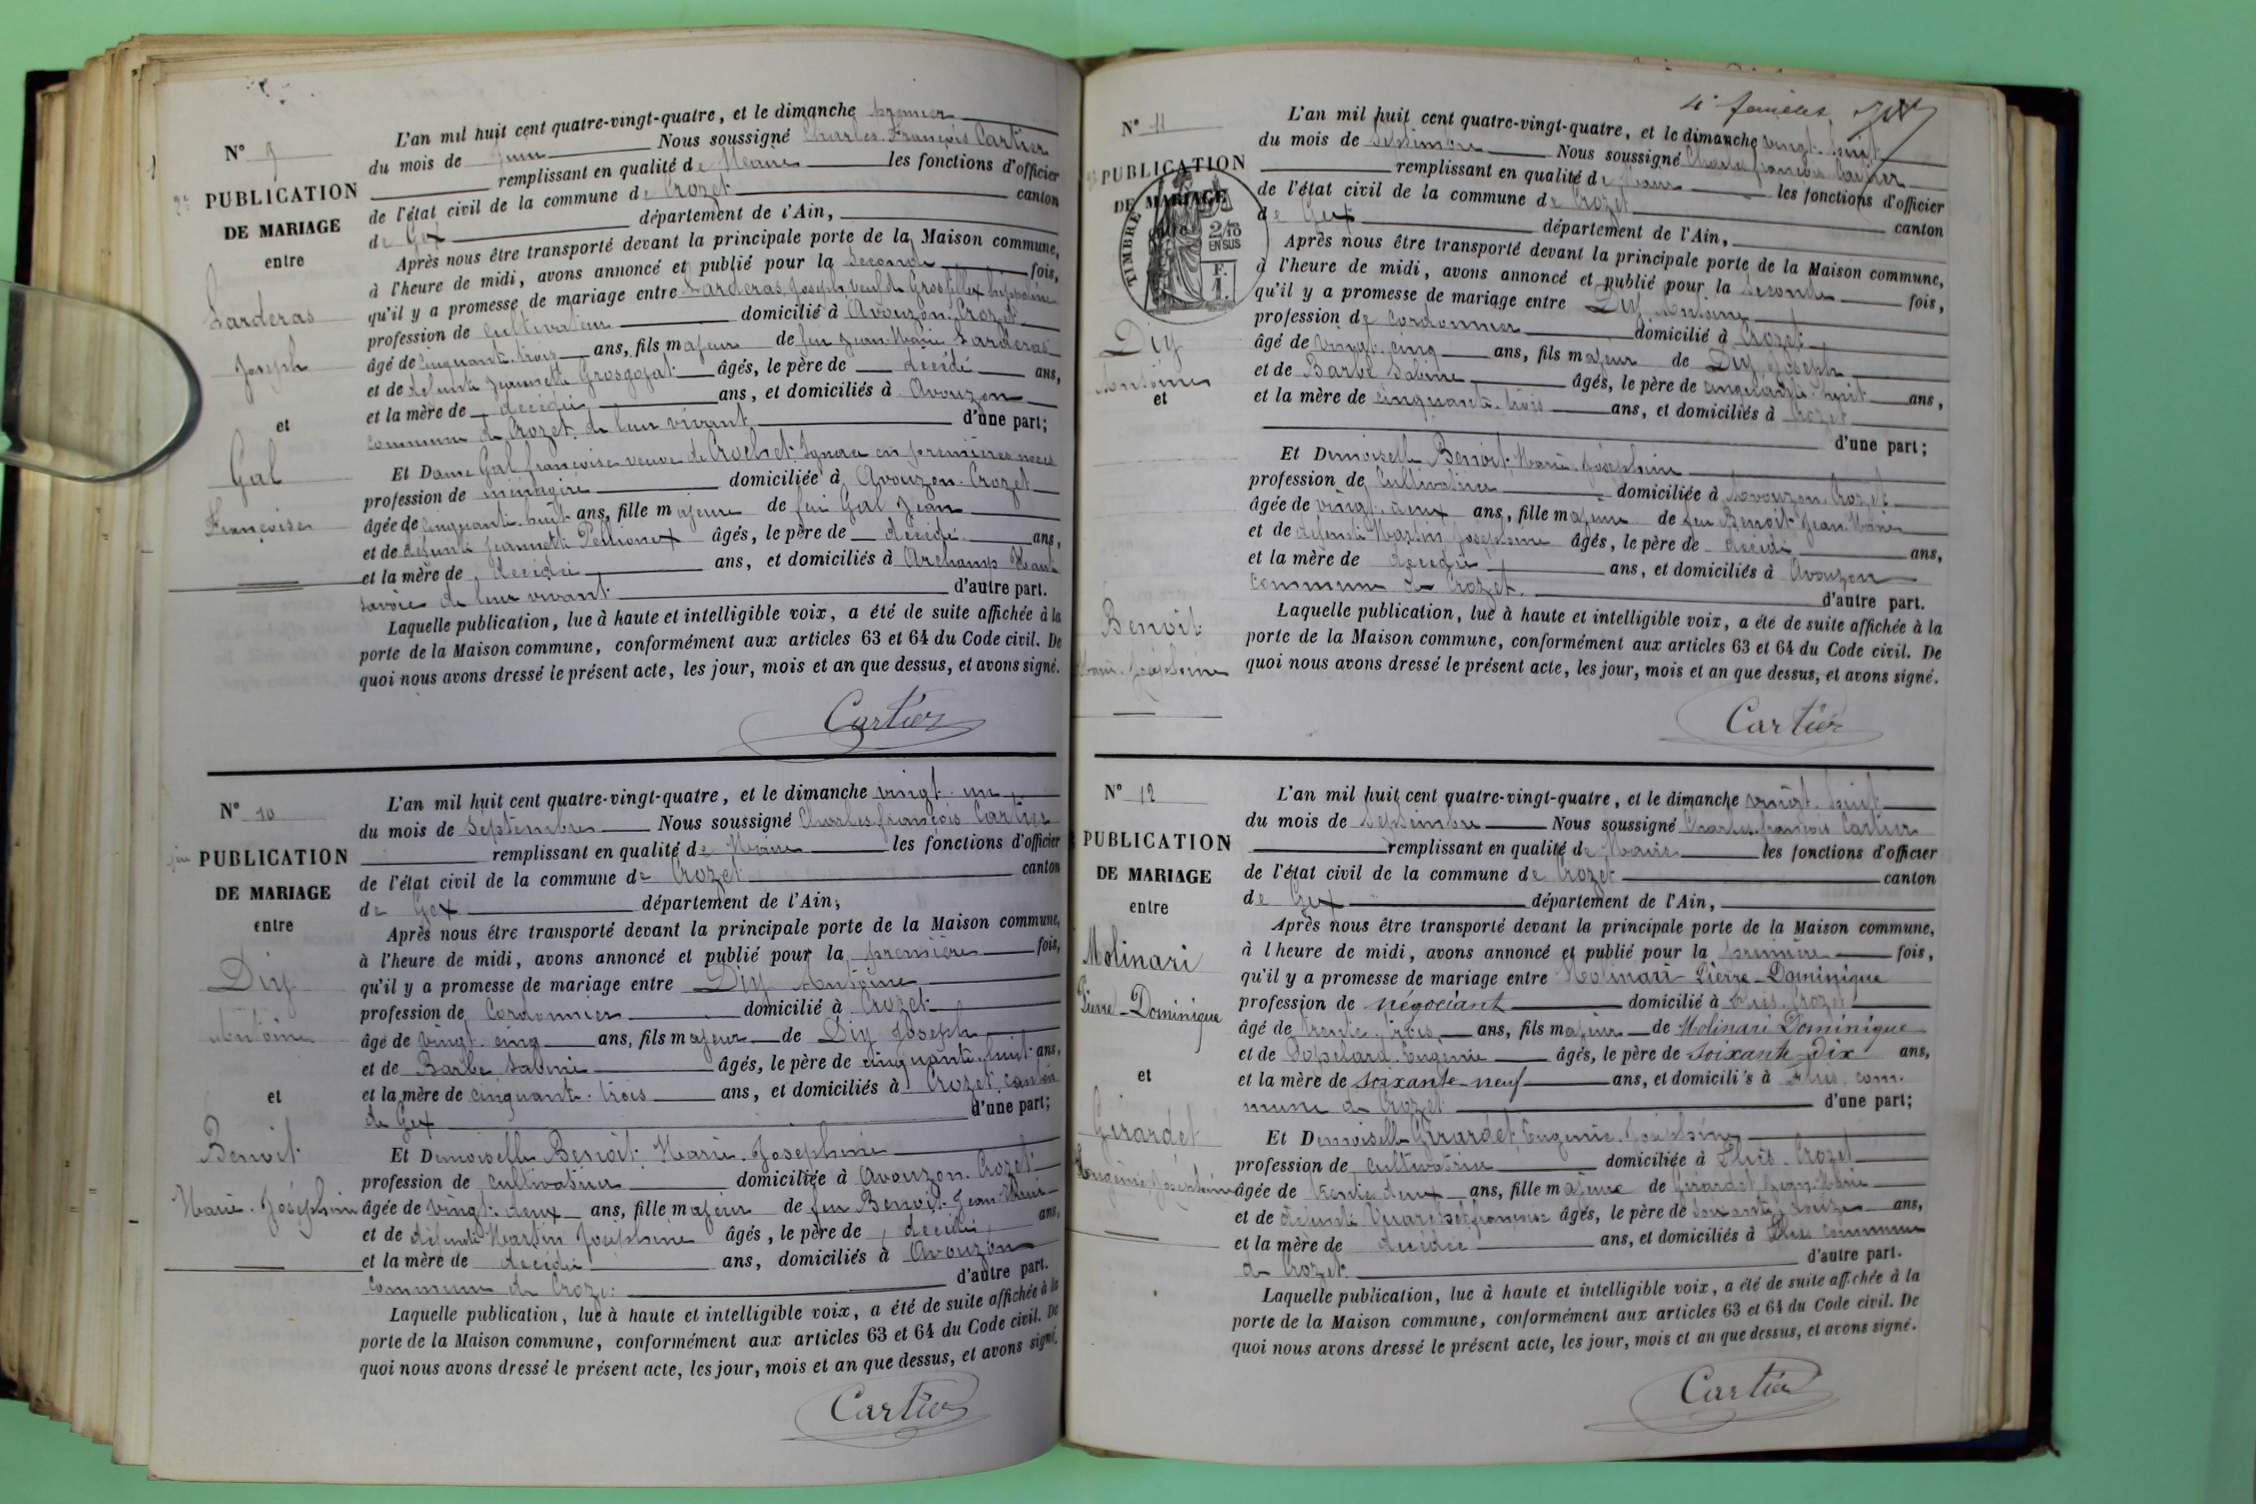 N° 9
2e PUBLICATION
DE MARIAGE
entre
Larderas
Joseph
et
Gal
Françoise
L'an mil huit cent quatre-vingt-quatre, et le dimanche premier
du mois de Juin Nous soussigné Charles François Cartier
remplissant en qualité de Maire les fonctions d'officier
de l'état civil de la commune de Crozet canton
de Gex département de l'Ain,
Après nous être transporté devant la principale porte de la Maison commune,
à l'heure de midi, avons annoncé et publié pour la seconde fois,
qu'il y a promesse de mariage entre Larderas Joseph veuf de
profession de Cultivateur domicilié à Avouzon-Crozet
âgé de cinquante-trois ans, fils majeur de feu Jean Marie Larderas
et de défunte Jeannette Grosgojat âgés, le père de décédé ans,
et la mère de décédée ans, et domiciliés à Avouzon
commune de Crozet de leur vivant d'une part;
Et Dame Gal françoise veuve de Crochet en premières noces
profession de ménagère domiciliée à Avouzon-Crozet
âgée de cinquante-huit ans, fille majeure de feu Gal Jean
et de défunte Jeannette âgés, le père de décédé ans,
et la mère de décédée ans, et domiciliés à Archamp Haute
Savoie de leur vivant d'autre part.
Laquelle publication, lue à haute et intelligible voix, a été de suite affichée à la
porte de la Maison commune, conformément aux articles 63 et 64 du Code civil. De
quoi nous avons dressé le présent acte, les jour, mois et an que dessus, et avons signé.
Cartier
N° 10
PUBLICATION
DE MARIAGE
entre
Diy
Antoine
et
Benoit
Marie-Joséphine
L'an mil huit cent quatre-vingt-quatre, et le dimanche vingt-un
du mois de Septembre Nous soussigné Charles françois Cartier
remplissant en qualité de Maire les fonctions d'officier
de l'état civil de la commune de Crozet canton
de Gex département de l'Ain,
Après nous être transporté devant la principale porte de la Maison commune,
à l'heure de midi, avons annoncé et publié pour la première fois,
qu'il y a promesse de mariage entre Diy Antoine
profession de Cordonnier domicilié à Crozet
âgé de vingt-cinq ans, fils majeur de Diy Joseph
et de Barbe Sabine âgés, le père de cinquante-huit ans,
et la mère de cinquante-trois ans, et domiciliés à Crozet canton
de Gex d'une part;
Et Demoiselle Benoit Marie-Joséphine
profession de cultivatrice domiciliée à Avouzon-Crozet
âgée de vingt-deux ans, fille majeur de feu Benoit Jean-Marie
et de défunte Martin Joséphine âgés, le père de décédé ans,
et la mère de décédée ans, domiciliés à Avouzon
commune de Crozet d'autre part.
Laquelle publication, lue à haute et intelligible voix, a été de suite affichée à la
porte de la Maison commune, conformément aux articles 63 et 64 du Code civil. De
quoi nous avons dressé le présent acte, les jour, mois et an que dessus, et avons signé.
Cartier
4e
N° 11
PUBLICATION
DE MARIAGE
TIMBRE
2/10
EN SUS
F.
1.
Diy
Antoine
et
Benoit
Marie-Joséphine
L'an mil huit cent quatre-vingt-quatre, et le dimanche vingt-huit
du mois de Septembre Nous soussigné Charles françois Cartier
remplissant en qualité de Maire les fonctions d'officier
de l'état civil de la commune de Crozet canton
de Gex département de l'Ain,
Après nous être transporté devant la principale porte de la Maison commune,
à l'heure de midi, avons annoncé et publié pour la seconde fois,
qu'il y a promesse de mariage entre Diy Antoine
profession de cordonnier domicilié à Crozet
âgé de vingt-cinq ans, fils majeur de Diy Joseph
et de Barbe Sabine âgés, le père de cinquante-huit ans,
et la mère de cinquante-trois ans, et domiciliés à Crozet
d'une part;
Et Demoiselle Benoit Marie-Joséphine
profession de Cultivatrice domiciliée à Avouzon-Crozet
âgée de vingt-deux ans, fille majeure de feu Benoit Jean-Marie
et de défunte Martin Joséphine âgés, le père de décédé ans,
et la mère de décédée ans, et domiciliés à Avouzon
commune de Crozet. d'autre part.
Laquelle publication, lue à haute et intelligible voix, a été de suite affichée à la
porte de la Maison commune, conformément aux articles 63 et 64 du Code civil. De
quoi nous avons dressé le présent acte, les jour, mois et an que dessus, et avons signé.
Cartier
N° 12
PUBLICATION
DE MARIAGE
entre
Molinari
Pierre-Dominique
et
Girardet
Eugénie Joséphine
L'an mil huit cent quatre-vingt-quatre, et le dimanche vingt-huit
du mois de Septembre Nous soussigné Charles françois Cartier
remplissant en qualité de Maire les fonctions d'officier
de l'état civil de la commune de Crozet canton
de Gex département de l'Ain,
Après nous être transporté devant la principale porte de la Maison commune,
à l'heure de midi, avons annoncé et publié pour la première fois,
qu'il y a promesse de mariage entre Molinari Pierre-Dominique
profession de négociant domicilié à Crozet
âgé de trente-trois ans, fils majeur de Molinari Dominique
et de Eugénie âgés, le père de soixante-dix ans,
et la mère de soixante-neuf ans, et domiciliés à com-
mune de Crozet d'une part;
Et Demoiselle Girardet Eugénie Joséphine
profession de cultivatrice domiciliée à Crozet
âgée de trente-deux ans, fille majeure de Girardet Jean-Marie
et de défunte françoise âgés, le père de ans,
et la mère de décédée ans, et domiciliés à commune
de Crozet d'autre part.
Laquelle publication, lue à haute et intelligible voix, a été de suite affichée à la
porte de la Maison commune, conformément aux articles 63 et 64 du Code civil. De
quoi nous avons dressé le présent acte, les jour, mois et an que dessus, et avons signé.
Cartier